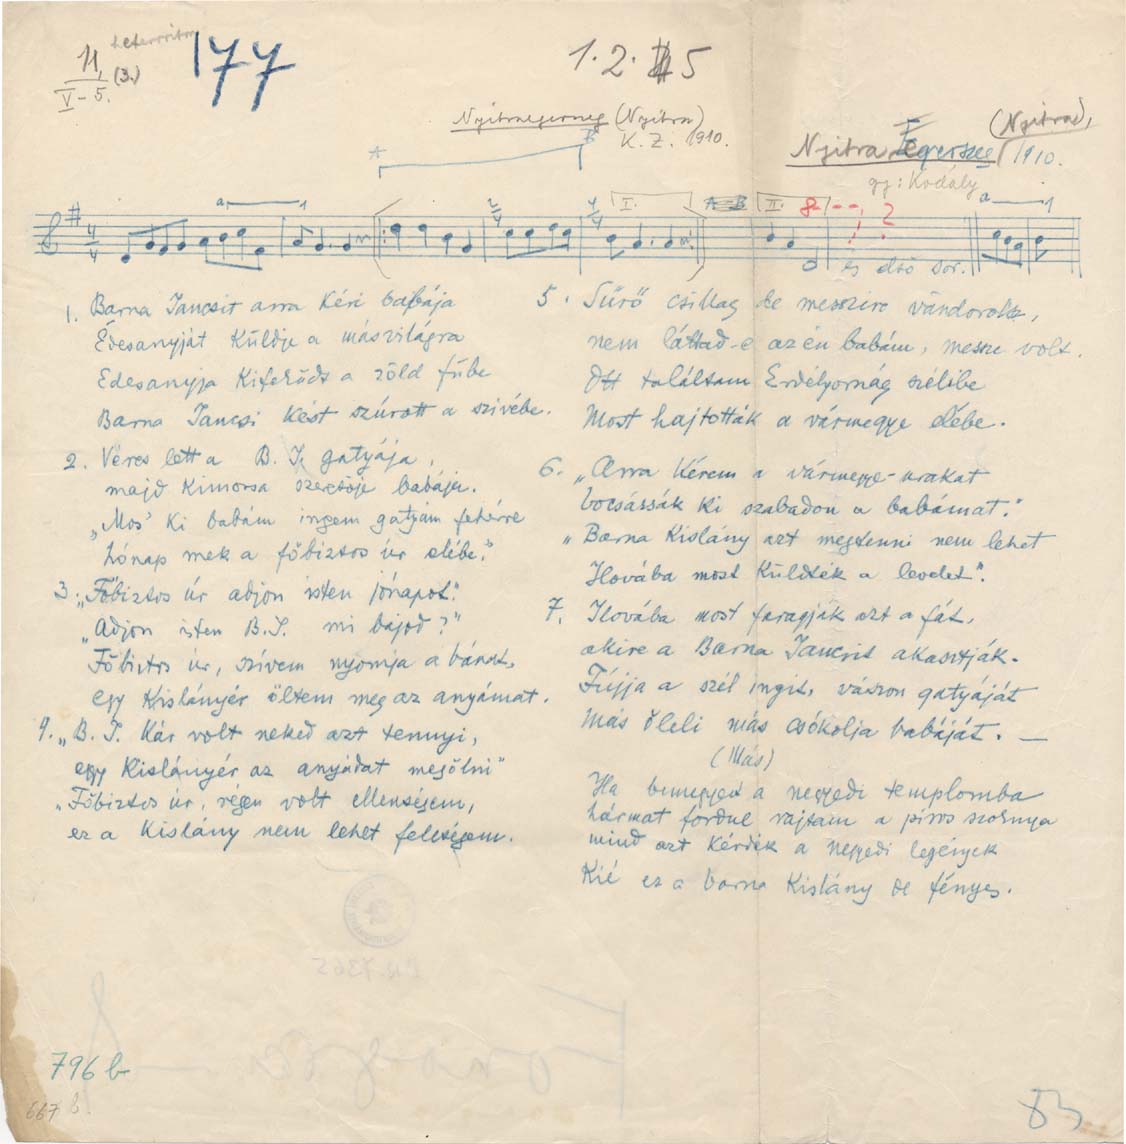 11 heteroritm
V-5. (3.)
177
1.2. 5
Nyitraegerszeg (Nyitra)
K. Z. 1910.
Nyitra Egerszeg (Nyitra),
1910.
gy: Kodály
A B
a 1 2/4 4/4 I. A B II. 8 - - - , ? a 1
4/4 és első sor.
1. Barna Jancsit arra kéri babája
Édesanyját küldje a másvilágra
Édesanyja kifeküdt a zöld fübe
Barna Jancsi kést szúrott a szivébe.
2. Véres lett a B. J. gatyája,
majd kimossa szeretője babája.
„Mos' ki babám ingem gatyám fehérre
hónap mek a főbiztos úr elébe."
3. „Főbiztos úr adjon isten jónapot."
„Adjon isten B. J. mi bajod?"
Főbiztos úr, szívem nyomja a bánat,
egy kislányér öltem meg az anyámat.
4. „B. J. kár volt neked azt tennyi,
egy kislányér az anyádat megölni"
„Főbiztos úr, régen volt ellenségem,
ez a kislány nem lehet feleségem.
5. Sűrő csillag de messzire vándorolsz,
nem láttad-e az én babám, messze volt.
Ott találtam Erdélyország szélibe
Most hajtották a vármegye elébe.
6. „Arra kérem a vármegye-urakat
bocsássák ki szabadon a babámat."
„Barna kislány azt megtenni nem lehet
Ilovába most küldték a levelet".
7. Ilovába most faragják azt a fát,
akire a Barna Jancsit akasztják.
Fújja a szél ingit, vászon gatyáját
Más öleli más csókolja babáját. —
(Más)
Ha bemegyek a negyedi templomba
hármat fordul rajtam a piros szoknya
mind azt kérdik a negyedi legények
Kié ez a barna kislány de fényes.
796 b
667 b.
83